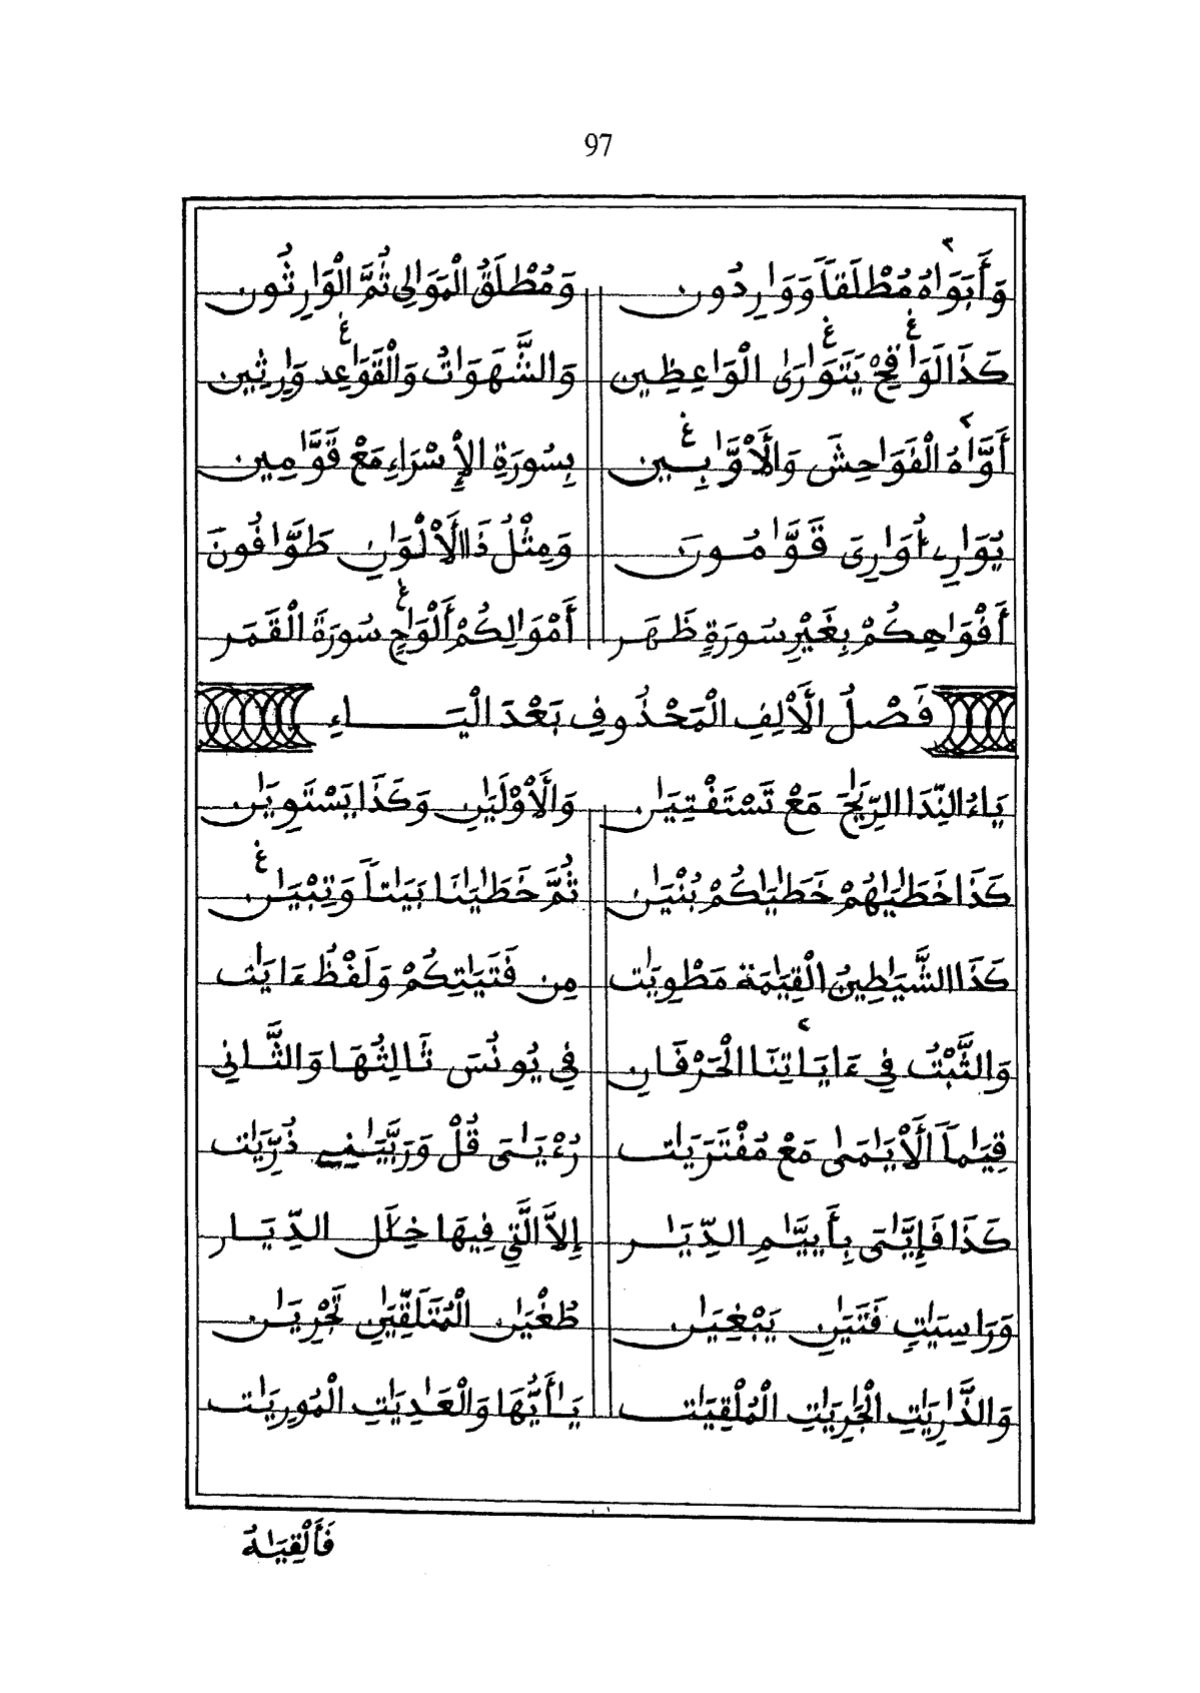 97
وَأَبَوَاهُ مُطْلَقاً وَوَارِدُون وَمُطْلَقُ الْمَوَالِي ثُمَّ الْوَارِثُون
كَذَا لَوَاقِحْ يَتَوَارَىٰ الْوَاعِظِين وَالشَّهَوَاتُ وَالْقَوَاعِد وَارِثِين
أَوَّاهُ الْفَوَاحِشَ وَالْأَوَّابِين بِسُورَةِ الإِسْرَاءِ مَعْ قَوَّامِين
يُوَارِي أُوَارِيَ قَوَّامُونَ وَمِثْلُ ذَا الْأَلْوَانِ طَوَّافُونَ
أَفْوَاهِكُمْ بِغَيْرِ سُورَةٍ ظَهَر أَمْوَالِكُمْ أَلْوَاحٍ سُورَةَ الْقَمَر
فَصْلُ الْأَلِفِ الْمَحْذُوفِ بَعْدَ الْيَاءِ
يَاءُ النِّدَا الرِّيَاحَ مَعْ تَسْتَفْتِيَان وَالْأَوْلَيَانِ وَكَذَا يَسْتَوِيَان
كَذَا خَطَايَاهُمْ خَطَايَاكُمْ بُنْيَان ثُمَّ خَطَايَانَا بَيَاتاً وَتِبْيَان
كَذَا الشَّيَاطِينُ الْقِيَامَة مَطْوِيَات مِن فَتَيَاتِكُمْ وَلَفْظُ ءَايَات
وَالثَّبْتُ فِي ءَايَاتِنَا الْحَرْفَانِ فِي يُونُسَ ثَالِثُهَا وَالثَّانِي
قِيَاماً الْأَيَامَىٰ مَعْ مُفْتَرَيَات رُءْيَايَ قُلْ وَرَبَّيَانِي ذُرِّيَات
كَذَا فَإِيَّايَ بِأَيَّامِ الدِّيَار إِلاَّ الَّتِي فِيهَا خِلَالَ الدِّيَار
وَرَاسِيَاتٍ فَتَيَانِ يَبْغِيَان طُغْيَان الْمُتَلَقِّيَانِ تَجْرِيَان
وَالذَّارِيَاتِ الْجَارِيَاتِ الْمُلْقِيَات يَا أَيُّهَا وَالْعَادِيَاتِ الْمُورِيَات
فَأَلْقِيَاهُ